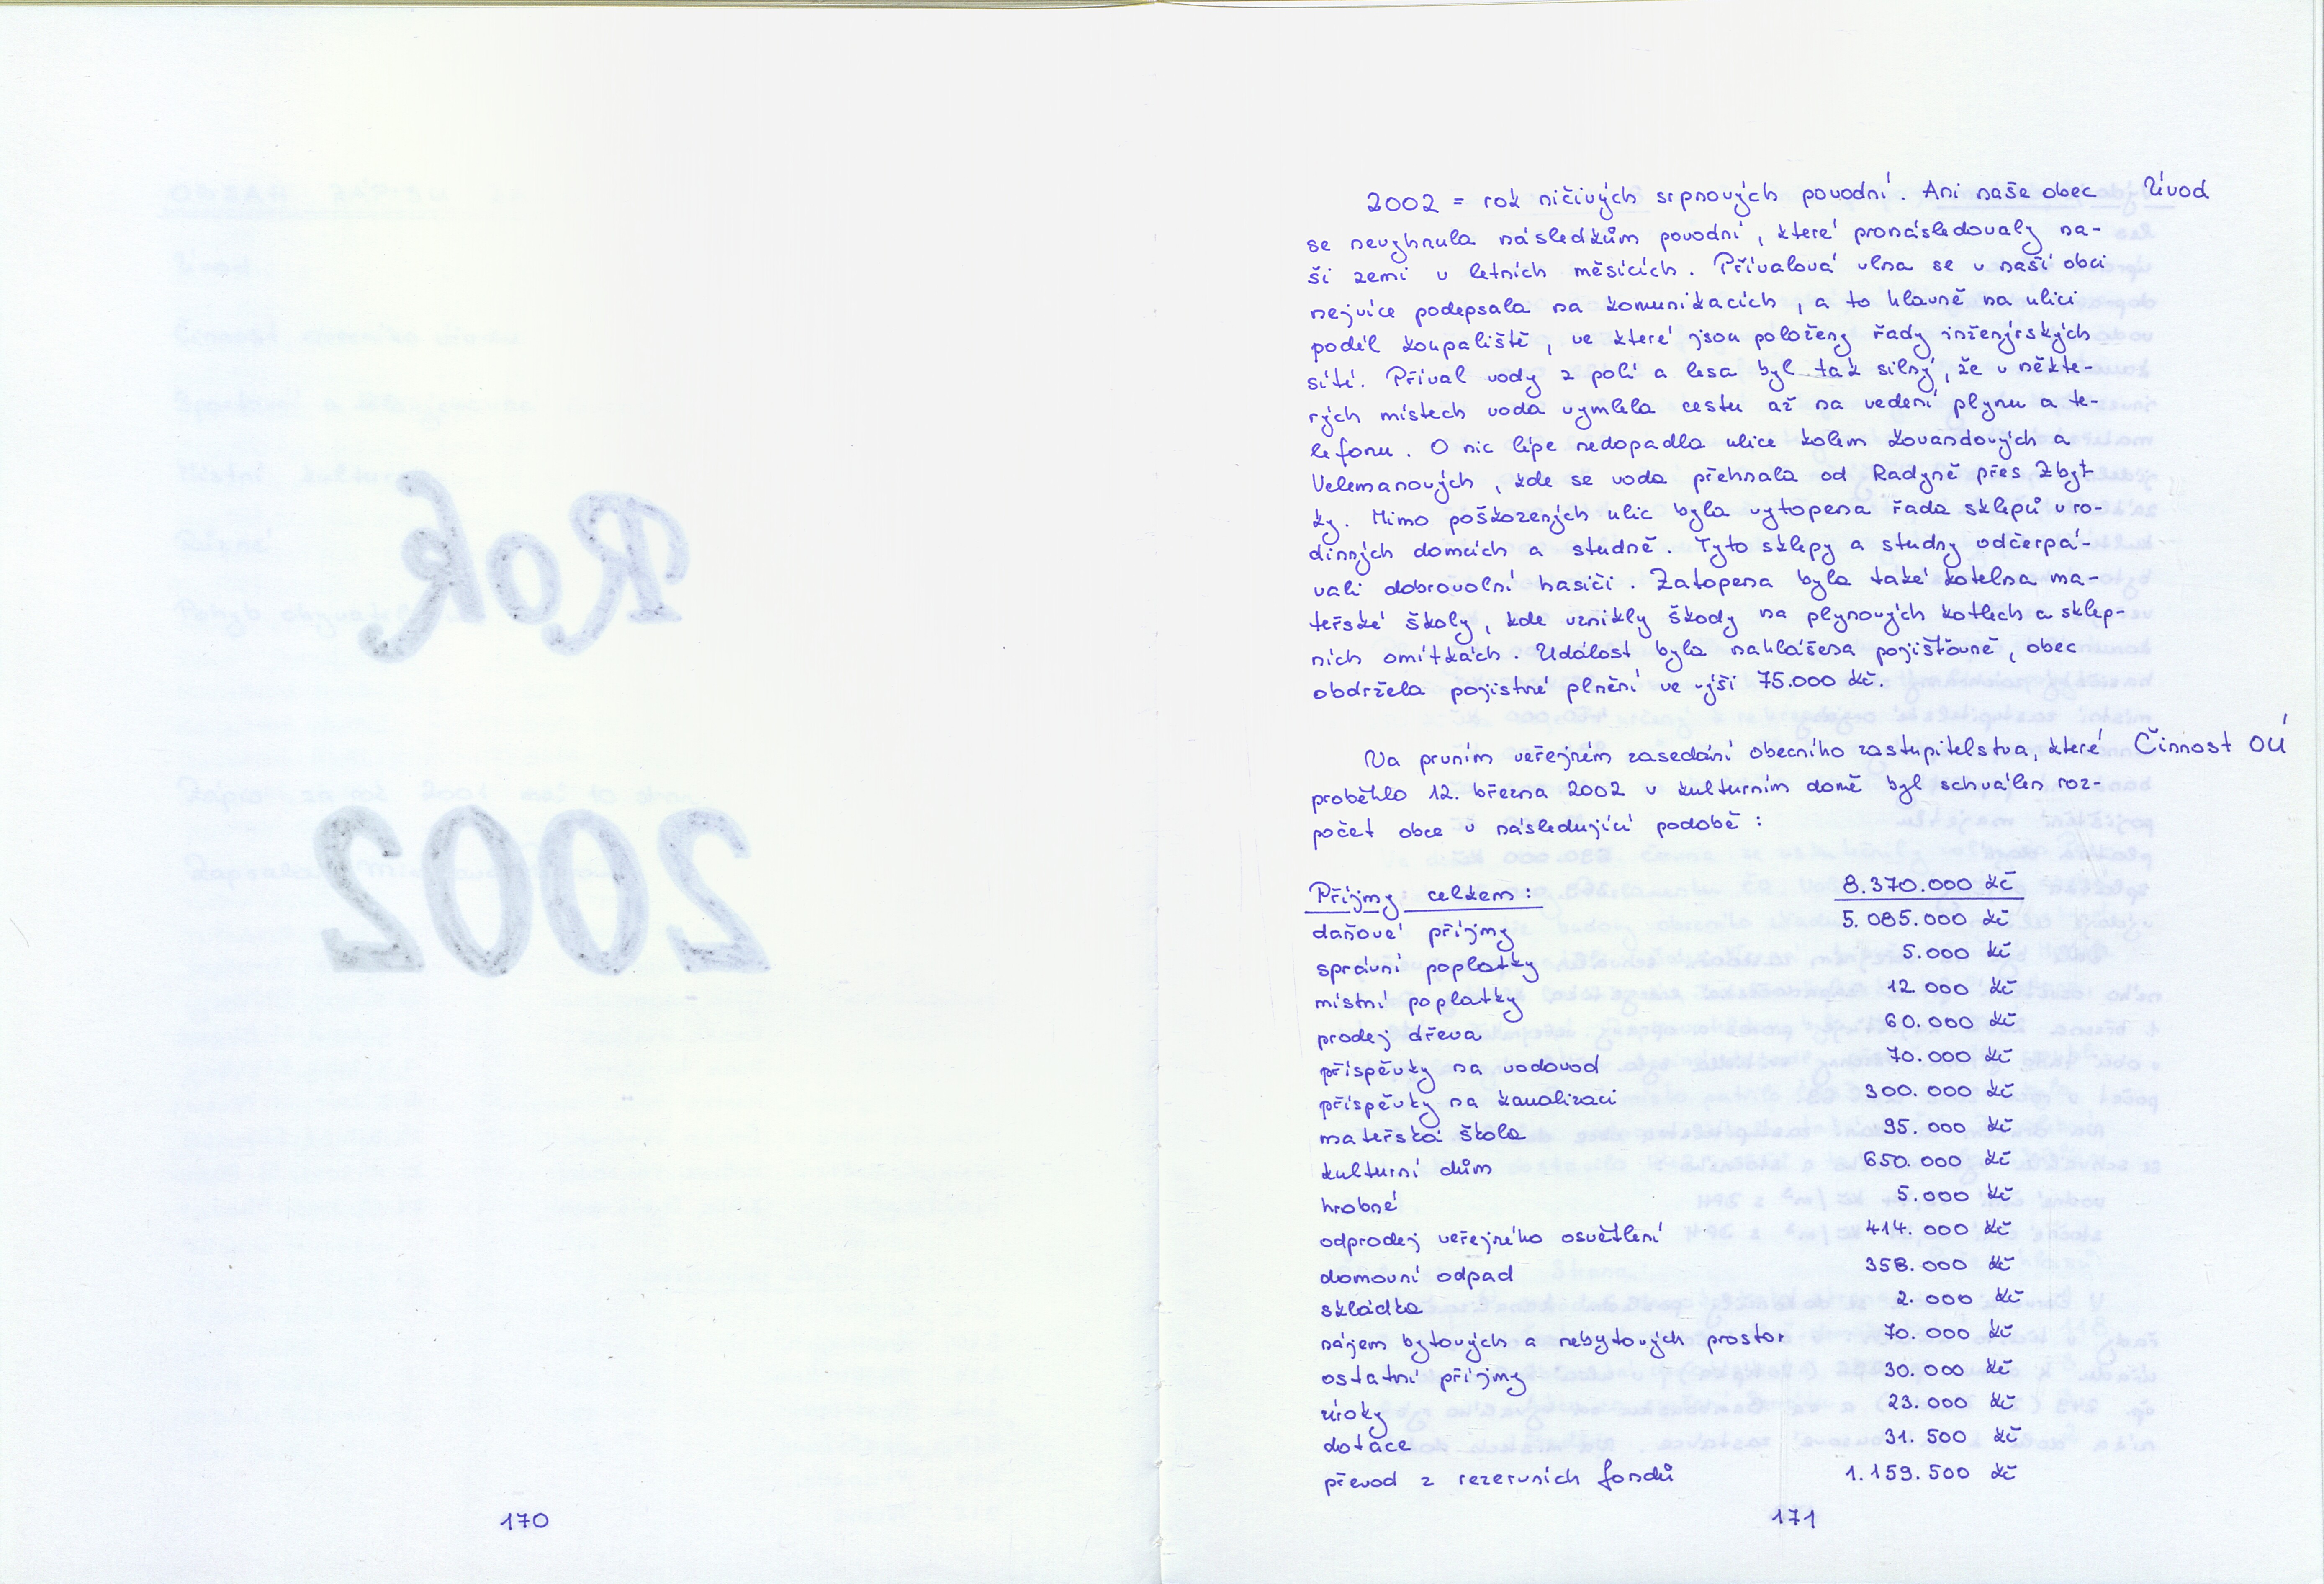 2002 = rok ničivých srpnových povodní. Ani naše obec Úvod
se nevyhnula následkům povodní, které pronásledovaly na-
ši zemi v letních měsících. Přívalová vlna se v naší obci
nejvíce podepsala na komunikacích, a to hlavně na ulici
podél koupaliště, ve které jsou položeny řady inženýrských
sítí. Příval vody z polí a lesa byl tak silný, že v někte-
rých místech voda vymlela cestu až na vedení plynu a te-
lefonu. O nic lépe nedopadla ulice kolem Kovandových a
Velemanových, kde se voda přehnala od Radyně přes Zbyt-
ky. Mimo poškozených ulic byla vytopena řada sklepů v ro-
dinných domcích a studně. Tyto sklepy a studny odčerpá-
vali dobrovolní hasiči. Zatopena byla také kotelna ma-
teřské školy, kde vznikly škody na plynových kotlech a sklep-
ních omítkách. Událost byla nahlášena pojišťovně, obec
obdržela pojistné plnění ve výši 75.000 Kč.
Na prvním veřejném zasedání obecního zastupitelstva, které Činnost OÚ
proběhlo 12. března 2002 v kulturním domě byl schválen roz-
počet obce v následující podobě:
Příjmy celkem: 8.370.000 Kč
daňové příjmy 5.085.000 Kč
správní poplatky 5.000 Kč
místní poplatky 12 000 Kč
prodej dřeva 60.000 Kč
příspěvky na vodovod 70.000 Kč
příspěvky na kanalizaci 300.000 Kč
mateřská škola 95.000 Kč
kulturní dům 650.000 Kč
hrobné 5.000 Kč
odprodej veřejného osvětlení 414.000 Kč
domovní odpad 358.000 Kč
skládka 2.000 Kč
nájem bytových a nebytových prostor 70.000 Kč
ostatní příjmy 30.000 Kč
úroky 23.000 Kč
dotace 31.500 Kč
převod z rezervních fondů 1.159.500 Kč
170
171